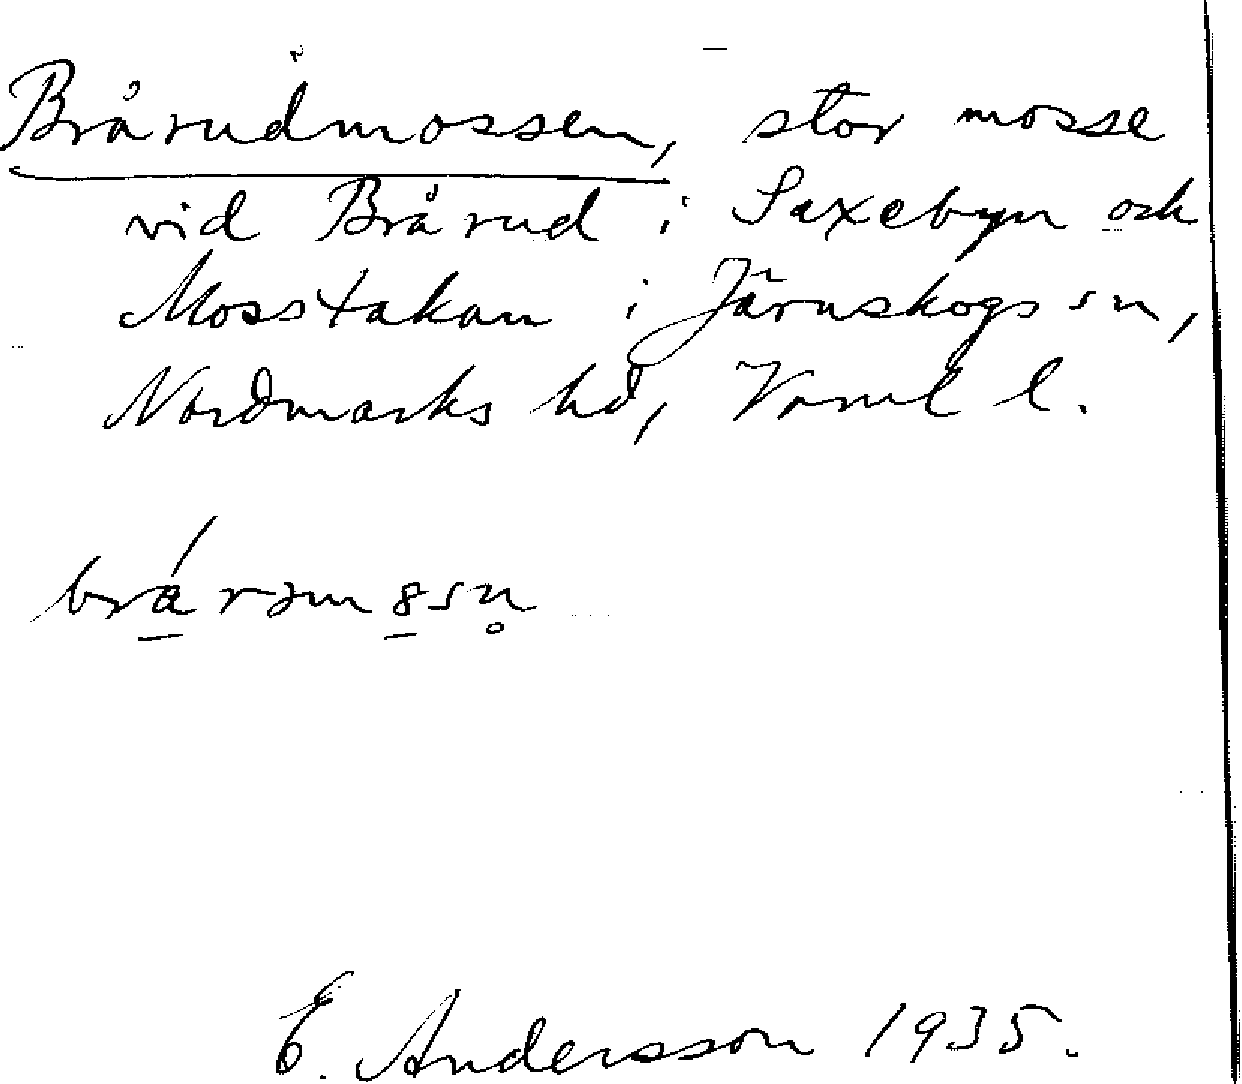 Brårudmossen, stor mosse
vid Brårud i Saxebyn och
Mosstakan i Järnskogs sn,
Nordmarks hd, Värml l.
E. Andersson 1935.